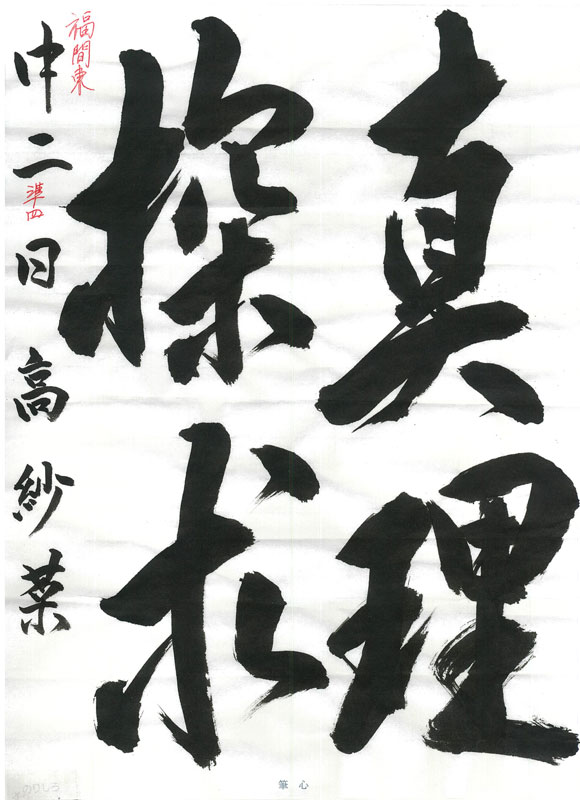 真理
探求
福間東
中二 日高紗菜
準四
筆心
のりしろ